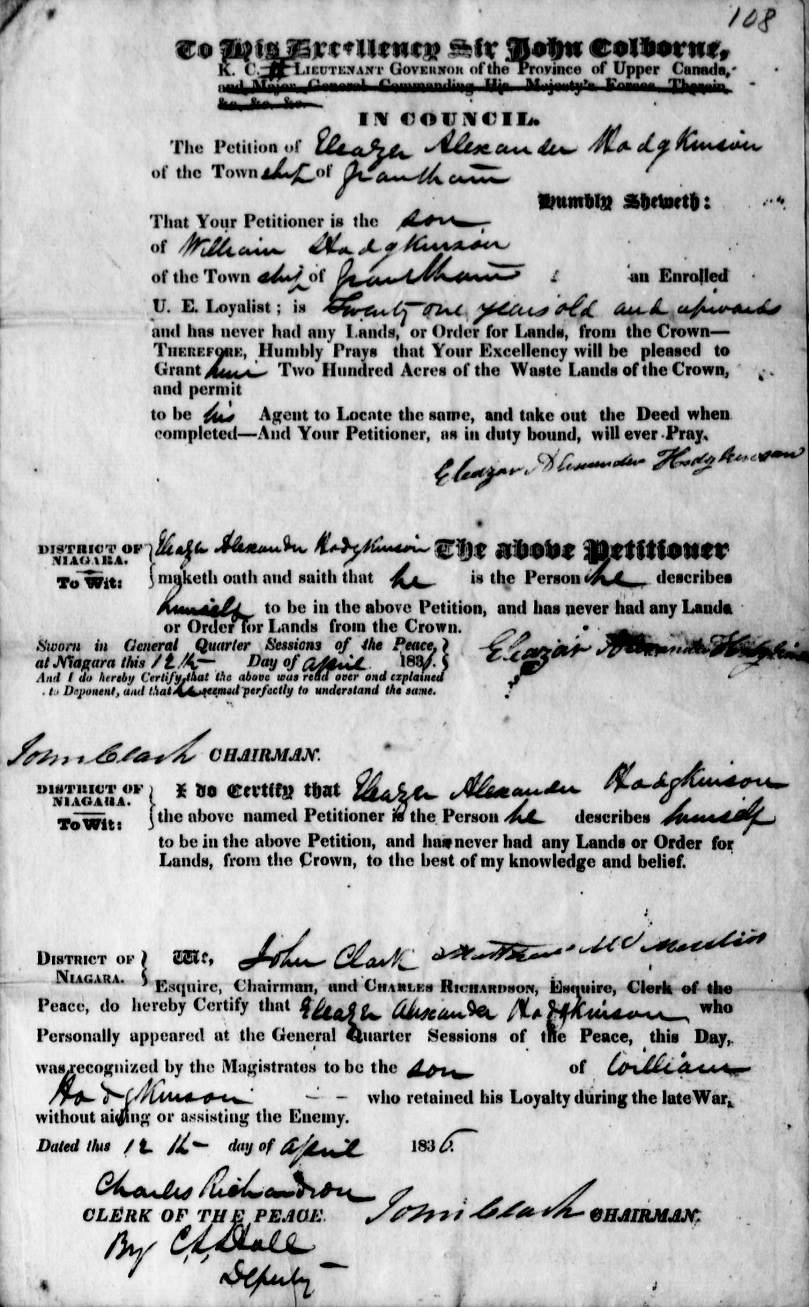 108
To His Excellency Sir John Colborne,
K. C. H LIEUTENANT GOVERNOR of the Province of Upper Canada,
and Major General Commanding His Majesty's Forces Therein,
&c. &c. &c.
IN COUNCIL.
The Petition of Eleazer Alexander Hodgkinson
of the Town ship of Grantham
Humbly Sheweth:
That Your Petitioner is the son
of William Hodgkinson
of the Town ship of Grantham an Enrolled
U. E. Loyalist; is Twenty one years old and upwards
and has never had any Lands, or Order for Lands, from the Crown—
THEREFORE, Humbly Prays that Your Excellency will be pleased to
Grant him Two Hundred Acres of the Waste Lands of the Crown,
and permit
to be his Agent to Locate the same, and take out the Deed when
completed—And Your Petitioner, as in duty bound, will ever Pray.
Eleazar Alexander Hodgkinson
DISTRICT OF NIAGARA. To Wit: Eleazer Alexander Hodgkinson The above Petitioner
maketh oath and saith that he is the Person he describes
himself to be in the above Petition, and has never had any Lands
or Order for Lands from the Crown.
Sworn in General Quarter Sessions of the Peace,
at Niagara this 12th Day of April 1836.
Eleazar Alexander Hodgkinson
And I do hereby Certify that the above was read over and explained
to Deponent, and that he seemed perfectly to understand the same.
John Clark CHAIRMAN.
DISTRICT OF NIAGARA. To Wit: I do Certify that Eleazer Alexander Hodgkinson
the above named Petitioner is the Person he describes himself
to be in the above Petition, and has never had any Lands or Order for
Lands, from the Crown, to the best of my knowledge and belief.
DISTRICT OF NIAGARA. We, John Clark
Esquire, Chairman, and CHARLES RICHARDSON, Esquire, Clerk of the
Peace, do hereby Certify that Eleazer Alexander Hodgkinson who
Personally appeared at the General Quarter Sessions of the Peace, this Day,
was recognized by the Magistrates to be the son of William
Hodgkinson who retained his Loyalty during the late War,
without aiding or assisting the Enemy.
Dated this 12th day of April 1836.
Charles Richardson
CLERK OF THE PEACE. John Clark CHAIRMAN.
By C. L. Hall
Deputy